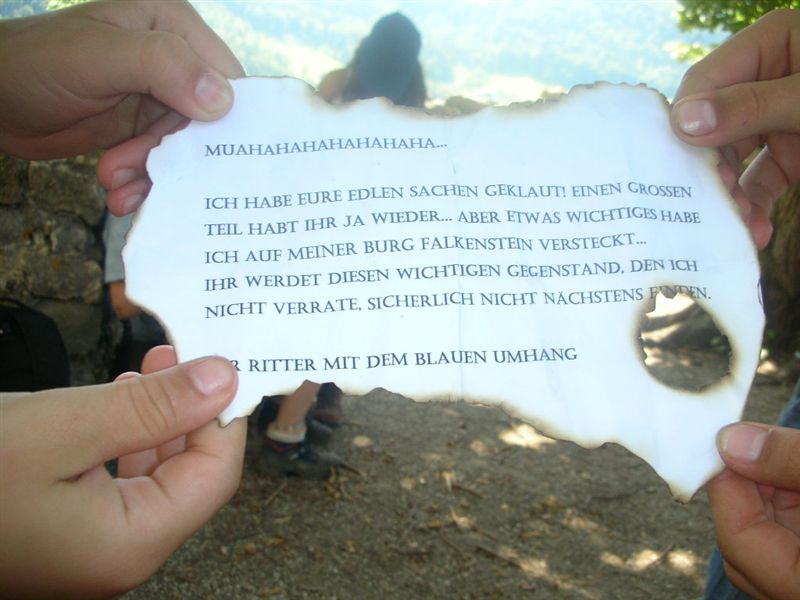 MUAHAHAHAHAHAHA...
ICH HABE EURE EDLEN SACHEN GEKLAUT! EINEN GROSSEN
TEIL HABT IHR JA WIEDER... ABER ETWAS WICHTIGES HABE
ICH AUF MEINER BURG FALKENSTEIN VERSTECKT...
IHR WERDET DIESEN WICHTIGEN GEGENSTAND, DEN ICH
NICHT VERRATE, SICHERLICH NICHT NÄCHSTENS FINDEN.
R RITTER MIT DEM BLAUEN UMHANG